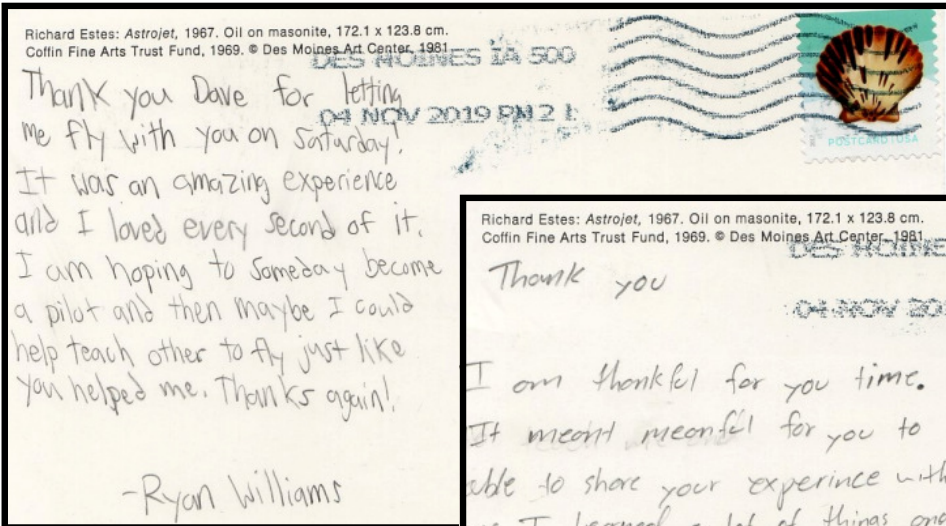 Richard Estes: Astrojet, 1967. Oil on masonite, 172.1 x 123.8 cm.
Coffin Fine Arts Trust Fund, 1969. © Des Moines Art Center, 1981
DES MOINES IA 500
04 NOV 2019 PM 2 L
POSTCARD USA
Thank you Dave for letting
me fly with you on Saturday!
It was an amazing experience
and I loved every second of it.
I am hoping to someday become
a pilot and then maybe I could
help teach other to fly just like
you helped me. Thanks again!
-Ryan Williams
Richard Estes: Astrojet, 1967. Oil on masonite, 172.1 x 123.8 cm.
Coffin Fine Arts Trust Fund, 1969. © Des Moines Art Center, 1981
DES MOINE
04 NOV 20
Thank you
I am thankful for you time.
It meant meanful for you to
able to share your experince with
I learned a lot of things and